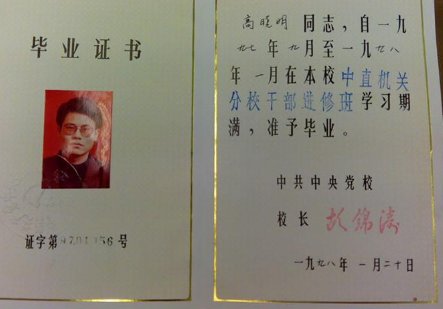 毕业证书
证字第9701356号
高晓明 同志，自一九
九七年九月至一九九八
年一月在本校中直机关
分校干部进修班学习期
满，准予毕业。
中共中央党校
校长 胡锦涛
一九九八年 一月二十日